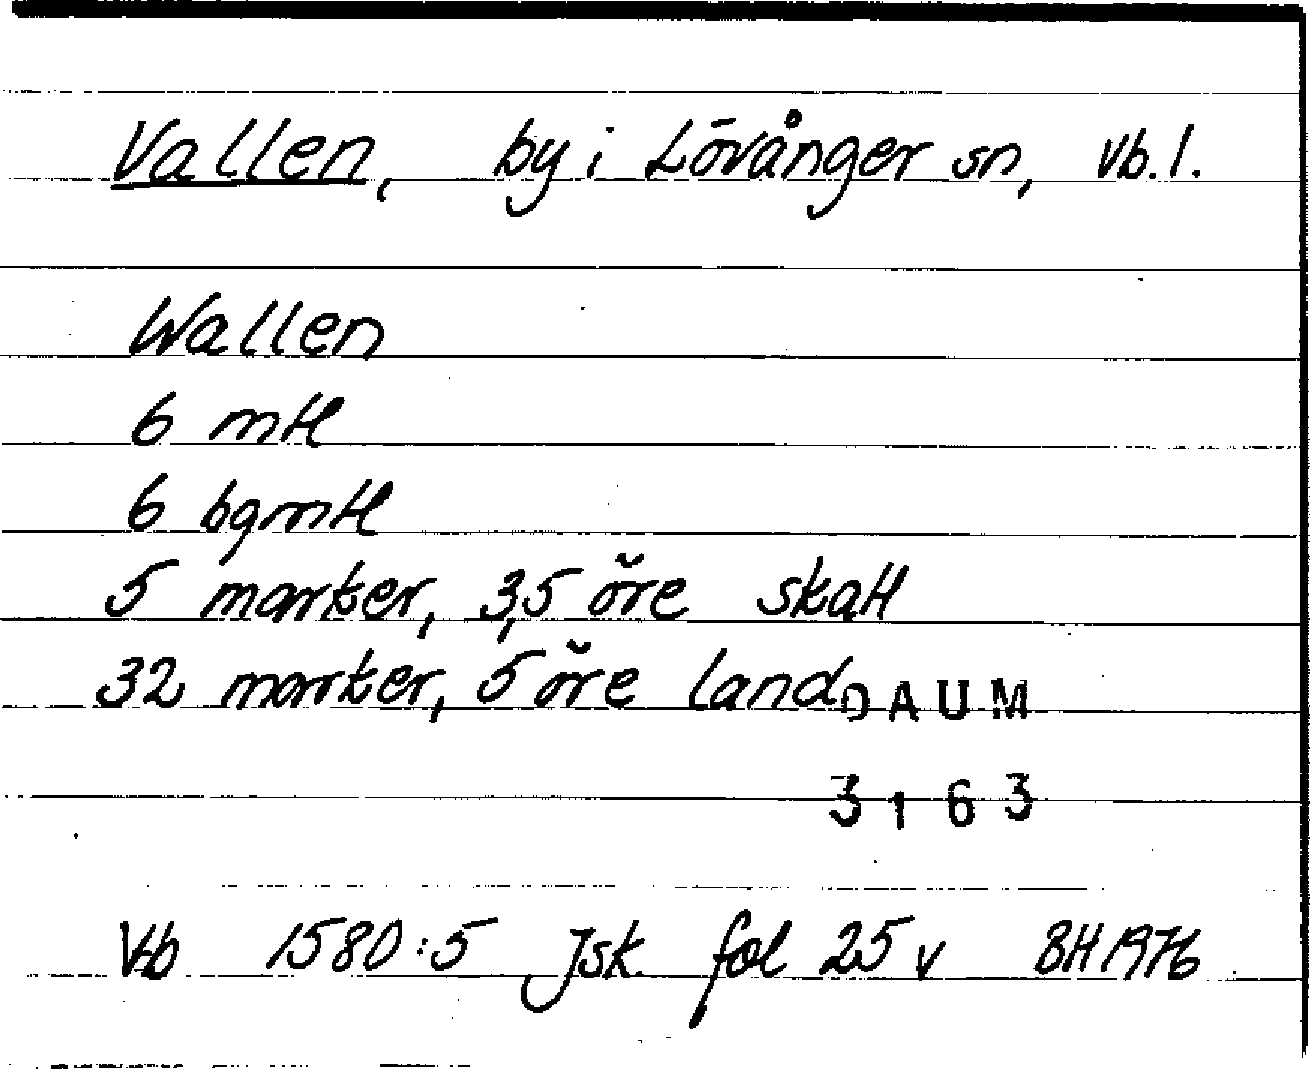 Vallen, by i Lövånger sn, Vb.l.
Wallen
6 mtl
6 bgmtl
5 marker, 3,5 öre skatt
32 marker, 5 öre land
DAUM
3163
Vb 1580:5 Jsk. fol 25 v BH 1976